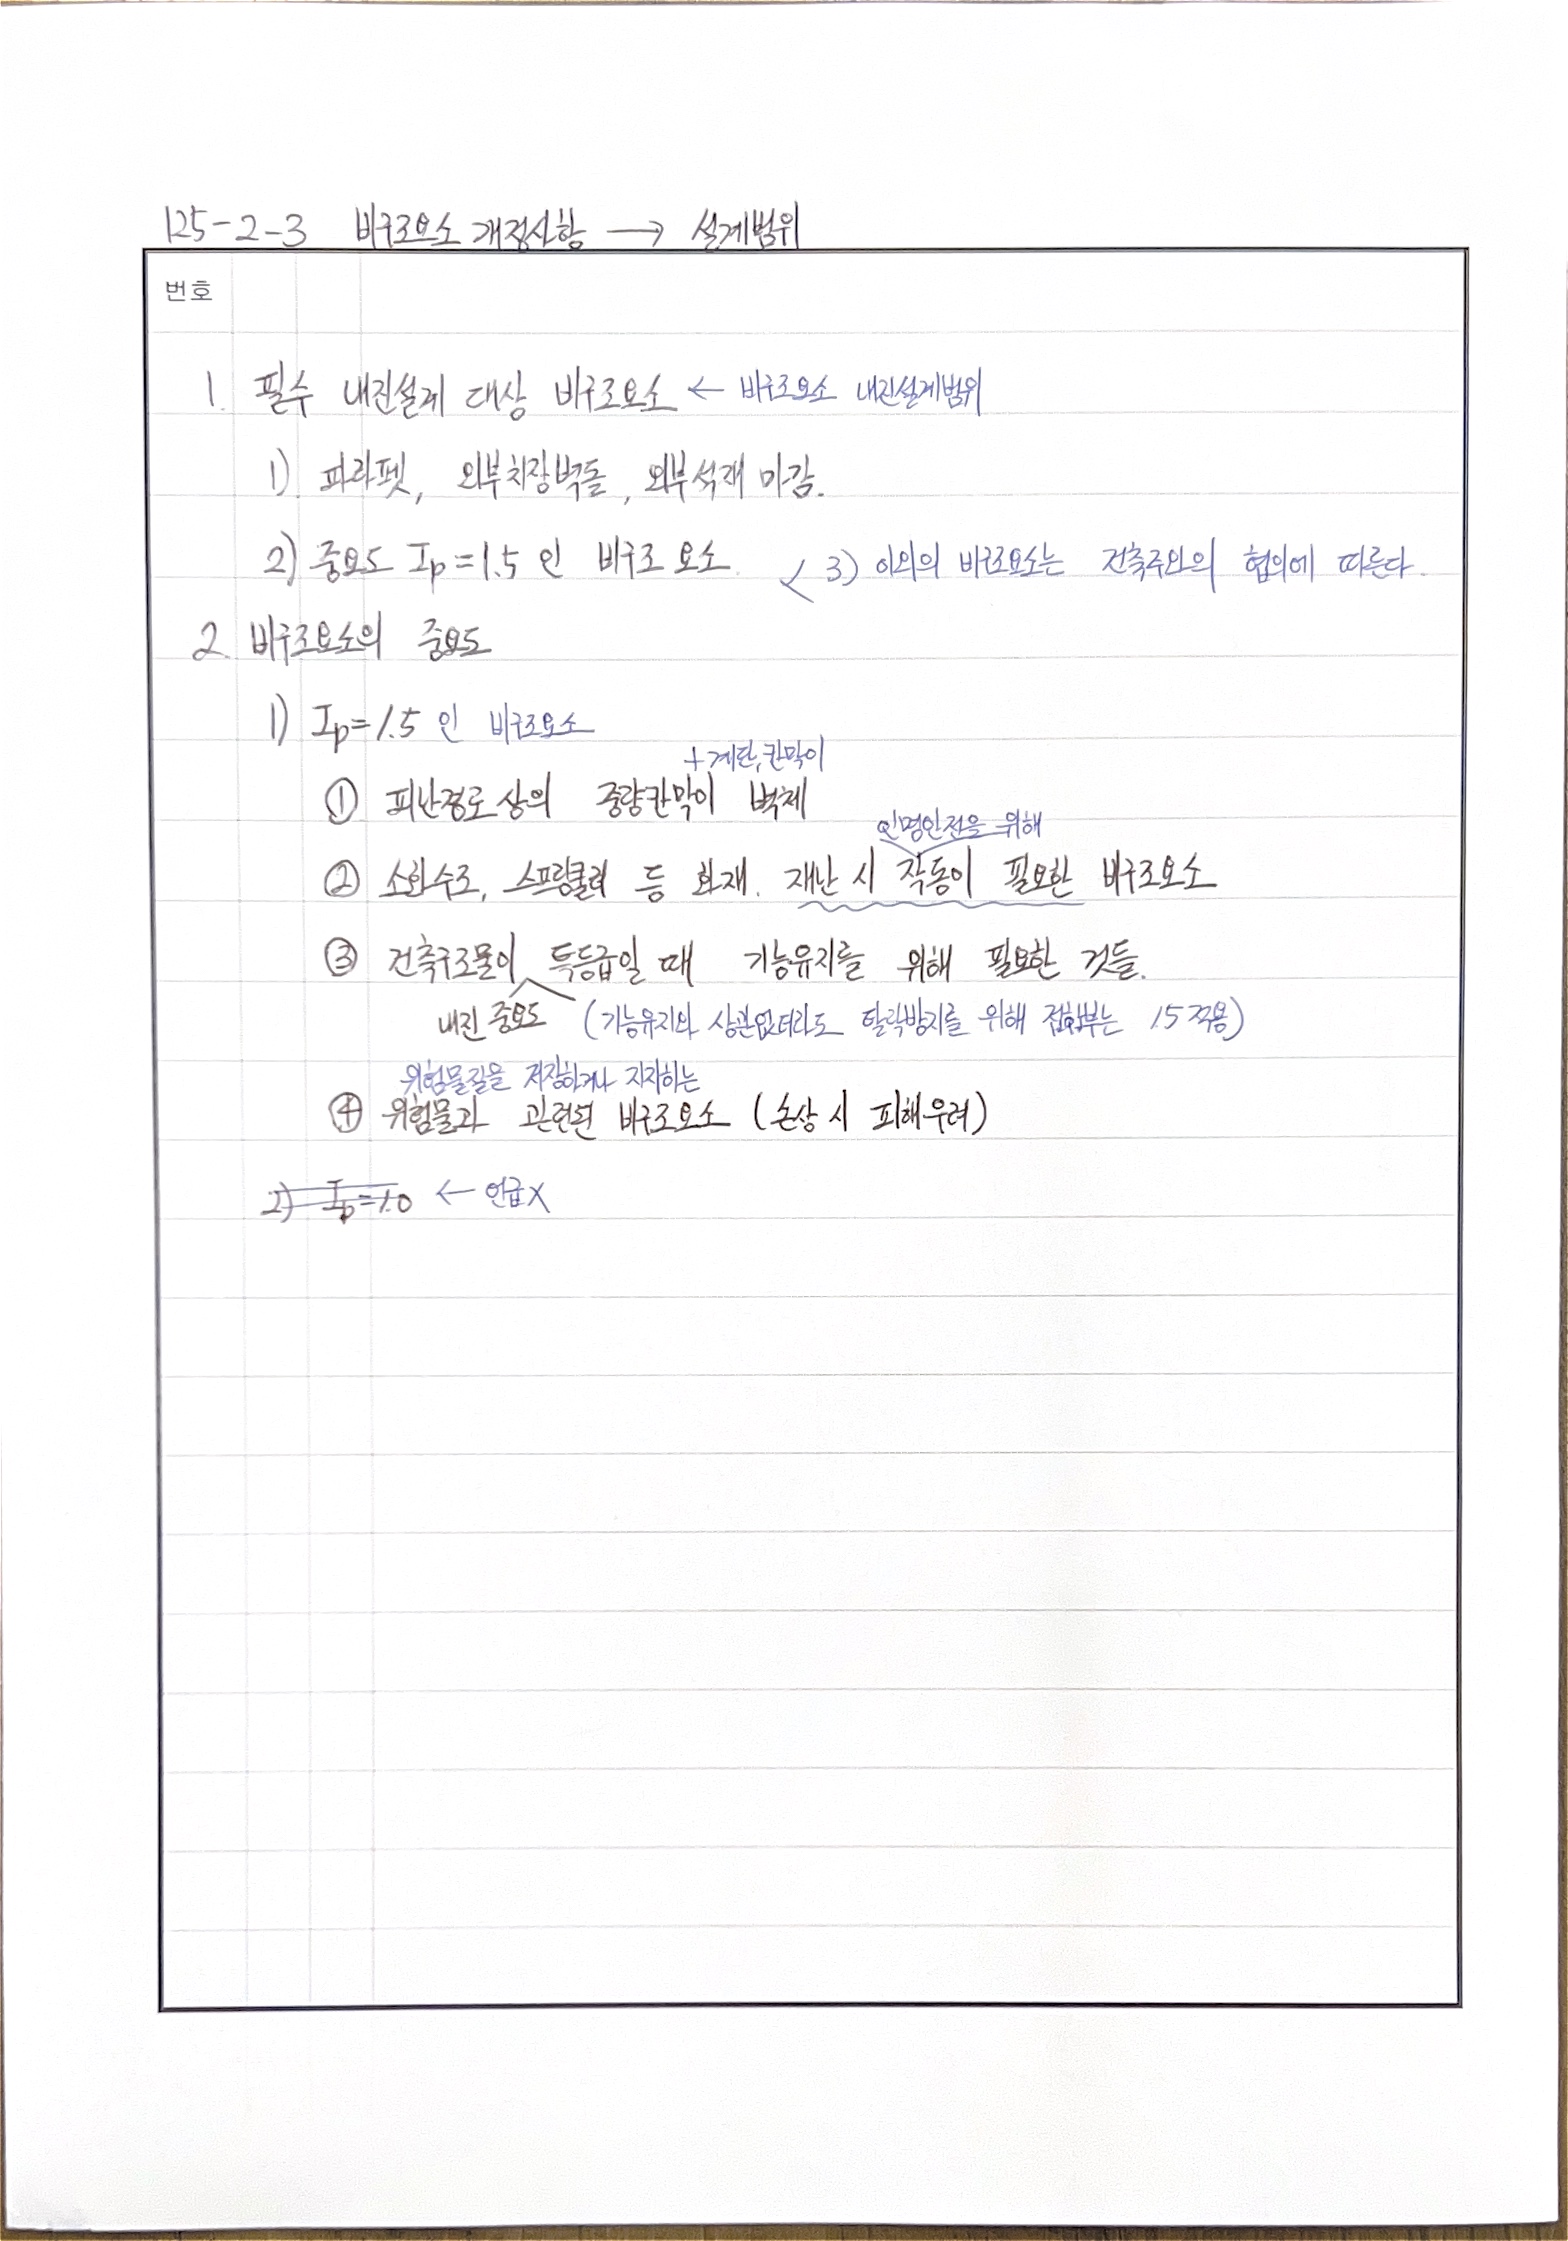 125-2-3 비구조요소 개정사항 → 설계범위
번호
1. 필수 내진설계 대상 비구조요소 ← 비구조요소 내진설계범위
1) 파라펫, 외부치장벽돌, 외부석재 마감.
2) 중요도 Ip=1.5 인 비구조요소. 3) 이외의 비구조요소는 건축주와의 협의에 따른다.
2. 비구조요소의 중요도
1) Ip=1.5 인 비구조요소
+계단,칸막이
① 피난경로 상의 중량칸막이 벽체
인명안전을 위해
② 소화수조, 스프링쿨러 등 화재. 재난 시 작동이 필요한 비구조요소
③ 건축구조물이 특등급일 때 기능유지를 위해 필요한 것들.
내진 중요도 (기능유지와 상관없더라도 탈락방지를 위해 접합부는 1.5 적용)
위험물질을 저장하거나 지지하는
④ 위험물과 관련된 비구조요소 (손상 시 피해우려)
2) Ip=1.0 ← 언급X